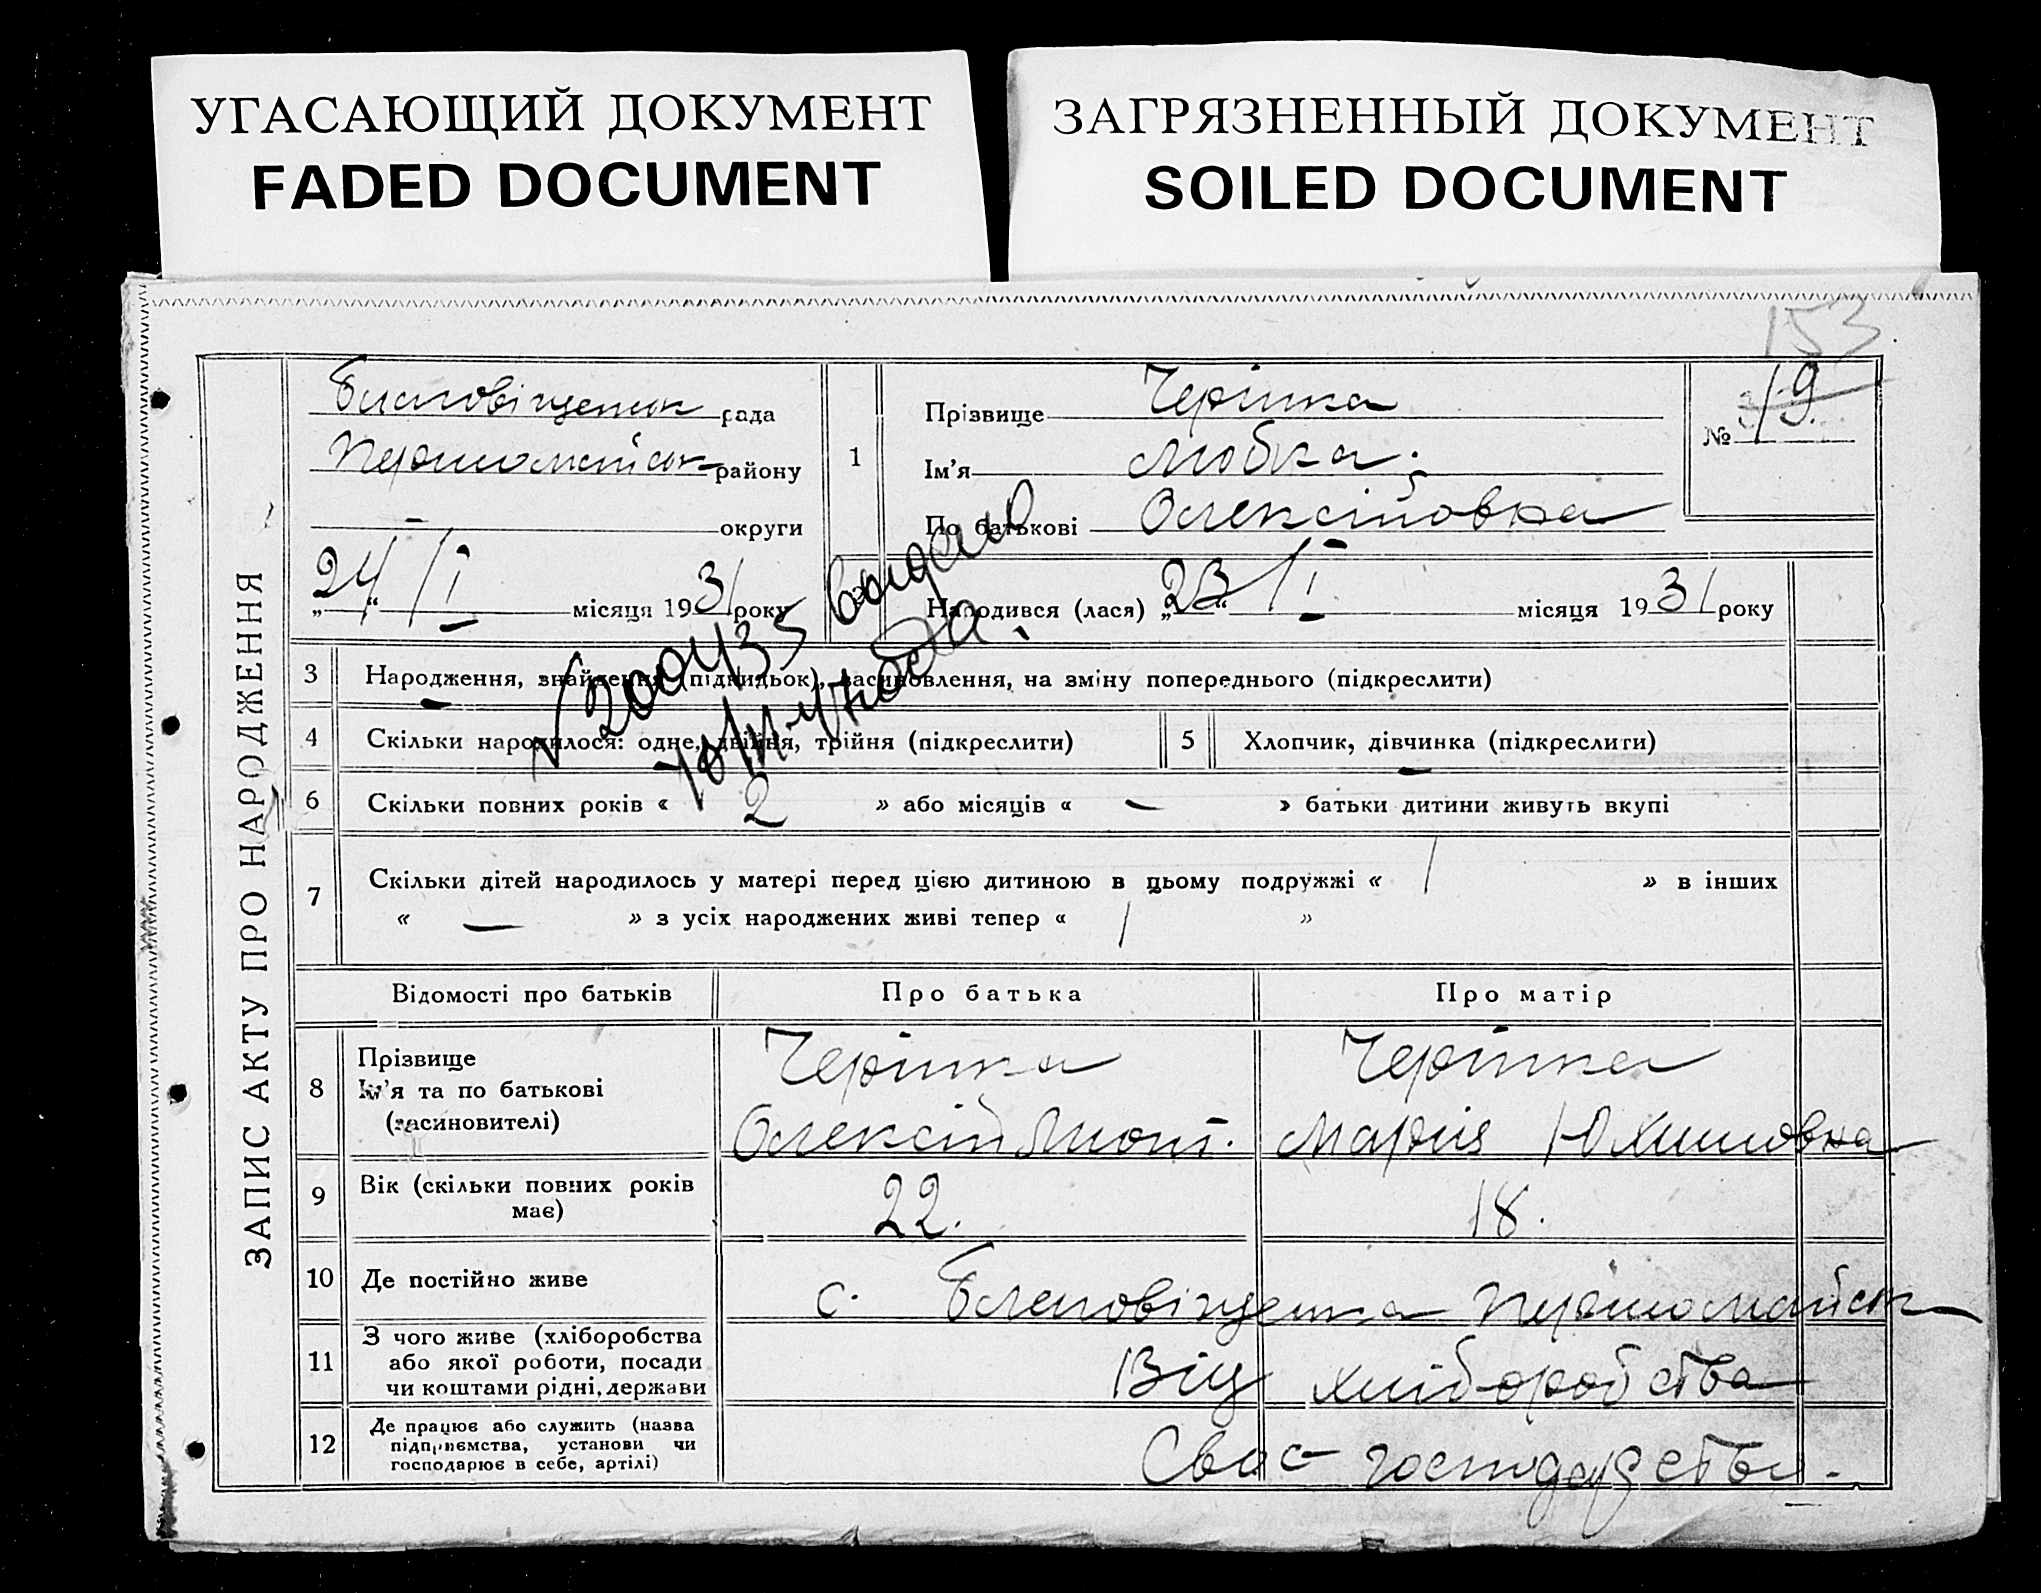 УГАСАЮЩИЙ ДОКУМЕНТ
FADED DOCUMENT
ЗАГРЯЗНЕННЫЙ ДОКУМЕНТ
SOILED DOCUMENT
153
ЗАПИС АКТУ ПРО НАРОДЖЕННЯ
рада
району
округи
„24“ I місяця 1931 року
1
Прізвище Черітка
Ім'я Любка.
По батькові Олексіївна
№ 19
Народився (лася) „23“ I місяця 1931 року
видано
3 Народження, знайдення (підкидьок), засиновлення, на зміну попереднього (підкреслити)
4 Скільки народилося: одне, двійня, трійня (підкреслити)
5 Хлопчик, дівчинка (підкреслити)
6 Скільки повних років « 2 » або місяців « — » батьки дитини живуть вкупі
7 Скільки дітей народилось у матері перед цією дитиною в цьому подружжі « 1 » в інших
« — » з усіх народжених живі тепер « 1 »
Відомості про батьків
Про батька
Про матір
8 Прізвище
Ім'я та по батькові
(засиновителі)
Черітка
Олексій
Черітка
Марія Юхимовна
9 Вік (скільки повних років
має)
22.
18.
10 Де постійно живе
с. Первомайськ
11 З чого живе (хліборобства
або якої роботи, посади
чи коштами рідні, держави
Від хліборобства
12 Де працює або служить (назва
підприємства, установи чи
господарює в себе, артілі)
Своє господарство.